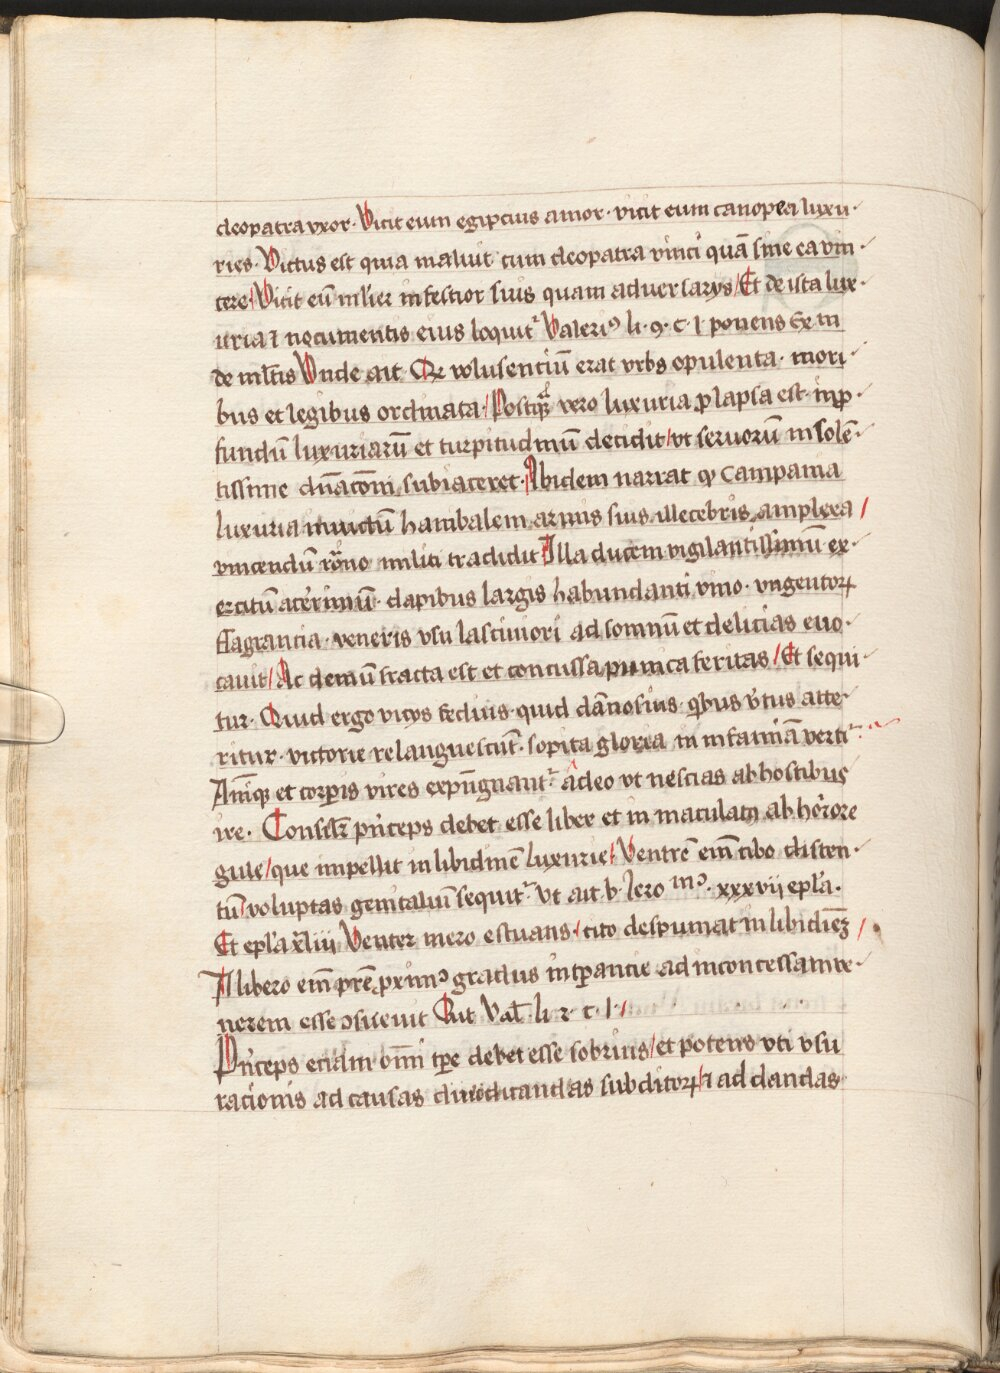 cleopatra vxor · Vicit eum egipcius amor · vicit eum canopea luxu·
ries · Victus est quia maluit cum cleopatra vinci quā sine ea vin·
cere / Vicit eū mlīer infestior suis quam aduersarys / Et de ista lux·
uria ⁊ nocumentis eius loquitᷣ Valeriꝰ li · 9 · c · 1 · ponens Ex in
de mltīs Vnde ait · Qꝫ volusentiū erat vrbs opulenta · mori
bus et legibus ordinata / Postqͣꝫ vero luxuria ꝓlapsa est · inp̄·
fundū luxuriarū et turpitudinū decidit / vt seruorū insolē·
tissime dn̄acōni subiaceret · Ibidem narrat ꝙ Campania
luxuria inuictū hanibalem armis suis illecebris amplexa /
vincendū rōno militi tradidit Illa ducem vigilantissimū ex·
ercitū acērimū · dapibus largis habundanti vino · vngentoꝝ
flagrantia · veneris vsu lasciuiori ad somnū et delicias euo·
cauit / Ac demū fracta est et concussa punica feritas / Et sequi
tur · Quid ergo vicys fedius · quid dāₙosius · qͥbus v̓tus atte·
ritur · victorie relanguescūt · sopita gloria in infamiā vertiᷣ ·
Aniͥqꝫ et corpis vires expūgnantᷣ · adeo vt nescias ab hostibus
ire · Consilꝫ pͥnceps debet esse liber et in maculatꝰ ab horrore
gule / que impellit in libidinē luxurie / Ventrē eīm cibo disten·
tū / voluptas genitaliū sequitᷣ Vt ait b · Iero inͦ · xxxvij epl̄a ·
Et epl̄a xliij Venter mero estuans / cito despumat in libidīeꝫ /
A libero eīm pr̄e ꝓximꝰ gradus intꝑantie ad inconcessam ve·
nerem esse ↄsueuit Ait Val̄ · li · 2 · c · 1 · /
Pͥnceps eciam omni tꝑe debet esse sobrius / et potens vti vsu
racionis ad causas diiudicandas subditoꝝ / ⁊ ad dandas